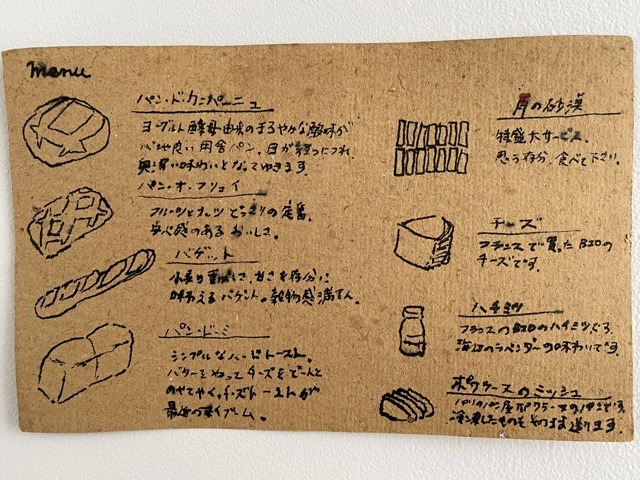 menu
パン・ド・カンパーニュ
ヨーグルト酵母由来のまろやかな酸味が
心地良い田舎パン。日が経つにつれ
奥深い味わいとなってゆきます。
パン・オ・フリュイ
フルーツとナッツどっさりの定番。
歩べ感のあるおいしさ。
バゲット
小麦の香ばしさ、甘さを存分に
味わえるバゲット。穀物感満てん。
パン・ド・ミ
シンプルなハードトースト。
バターをぬってチーズをでーんと
のせてやく。チーズトーストが
最近の楽ブーム。
月の砂漠
特盛大サービス。
思う存分、食べて下さい。
チーズ
フランスで買ったBIOの
チーズです。
ハチミツ
フランスのBIOのハチミツです。
海辺のラベンダーの味わいです。
ポワラーヌのミッシュ
パリのパン屋ポワラーヌの
冷凍したものをそのまま送ります。